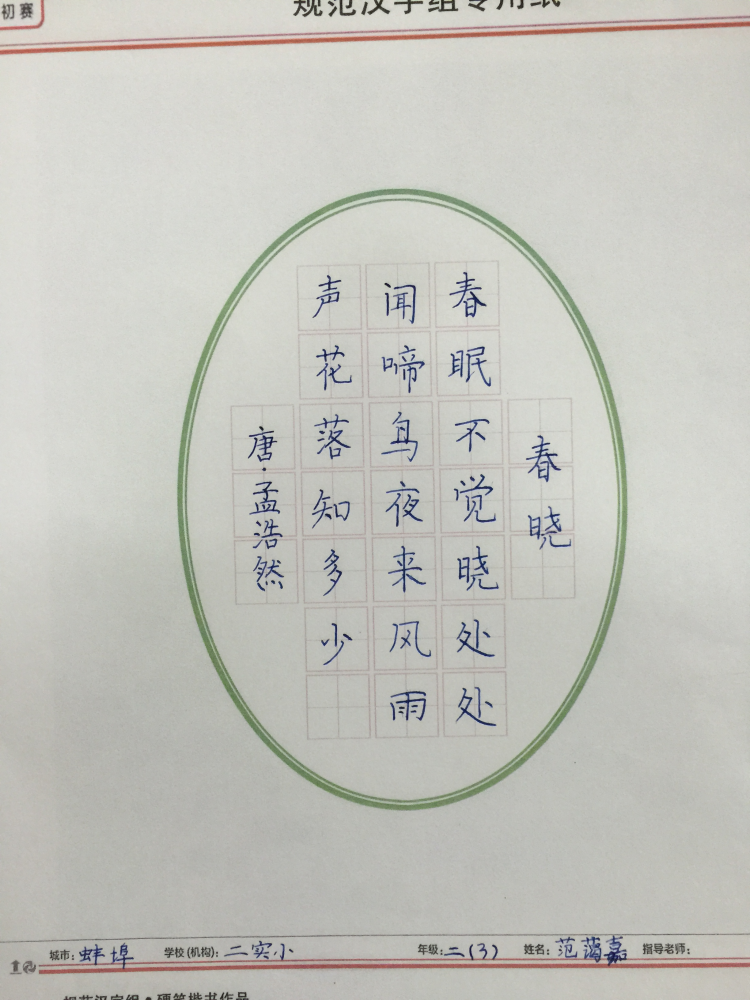 初赛
规范汉字组专用纸
春晓
春眠不觉晓处处
闻啼鸟夜来风雨
声花落知多少
唐·孟浩然
城市：蚌埠 学校(机构)：二实小 年级：二(3) 姓名：范蔼嘉 指导老师：
规范汉字组·硬笔楷书作品